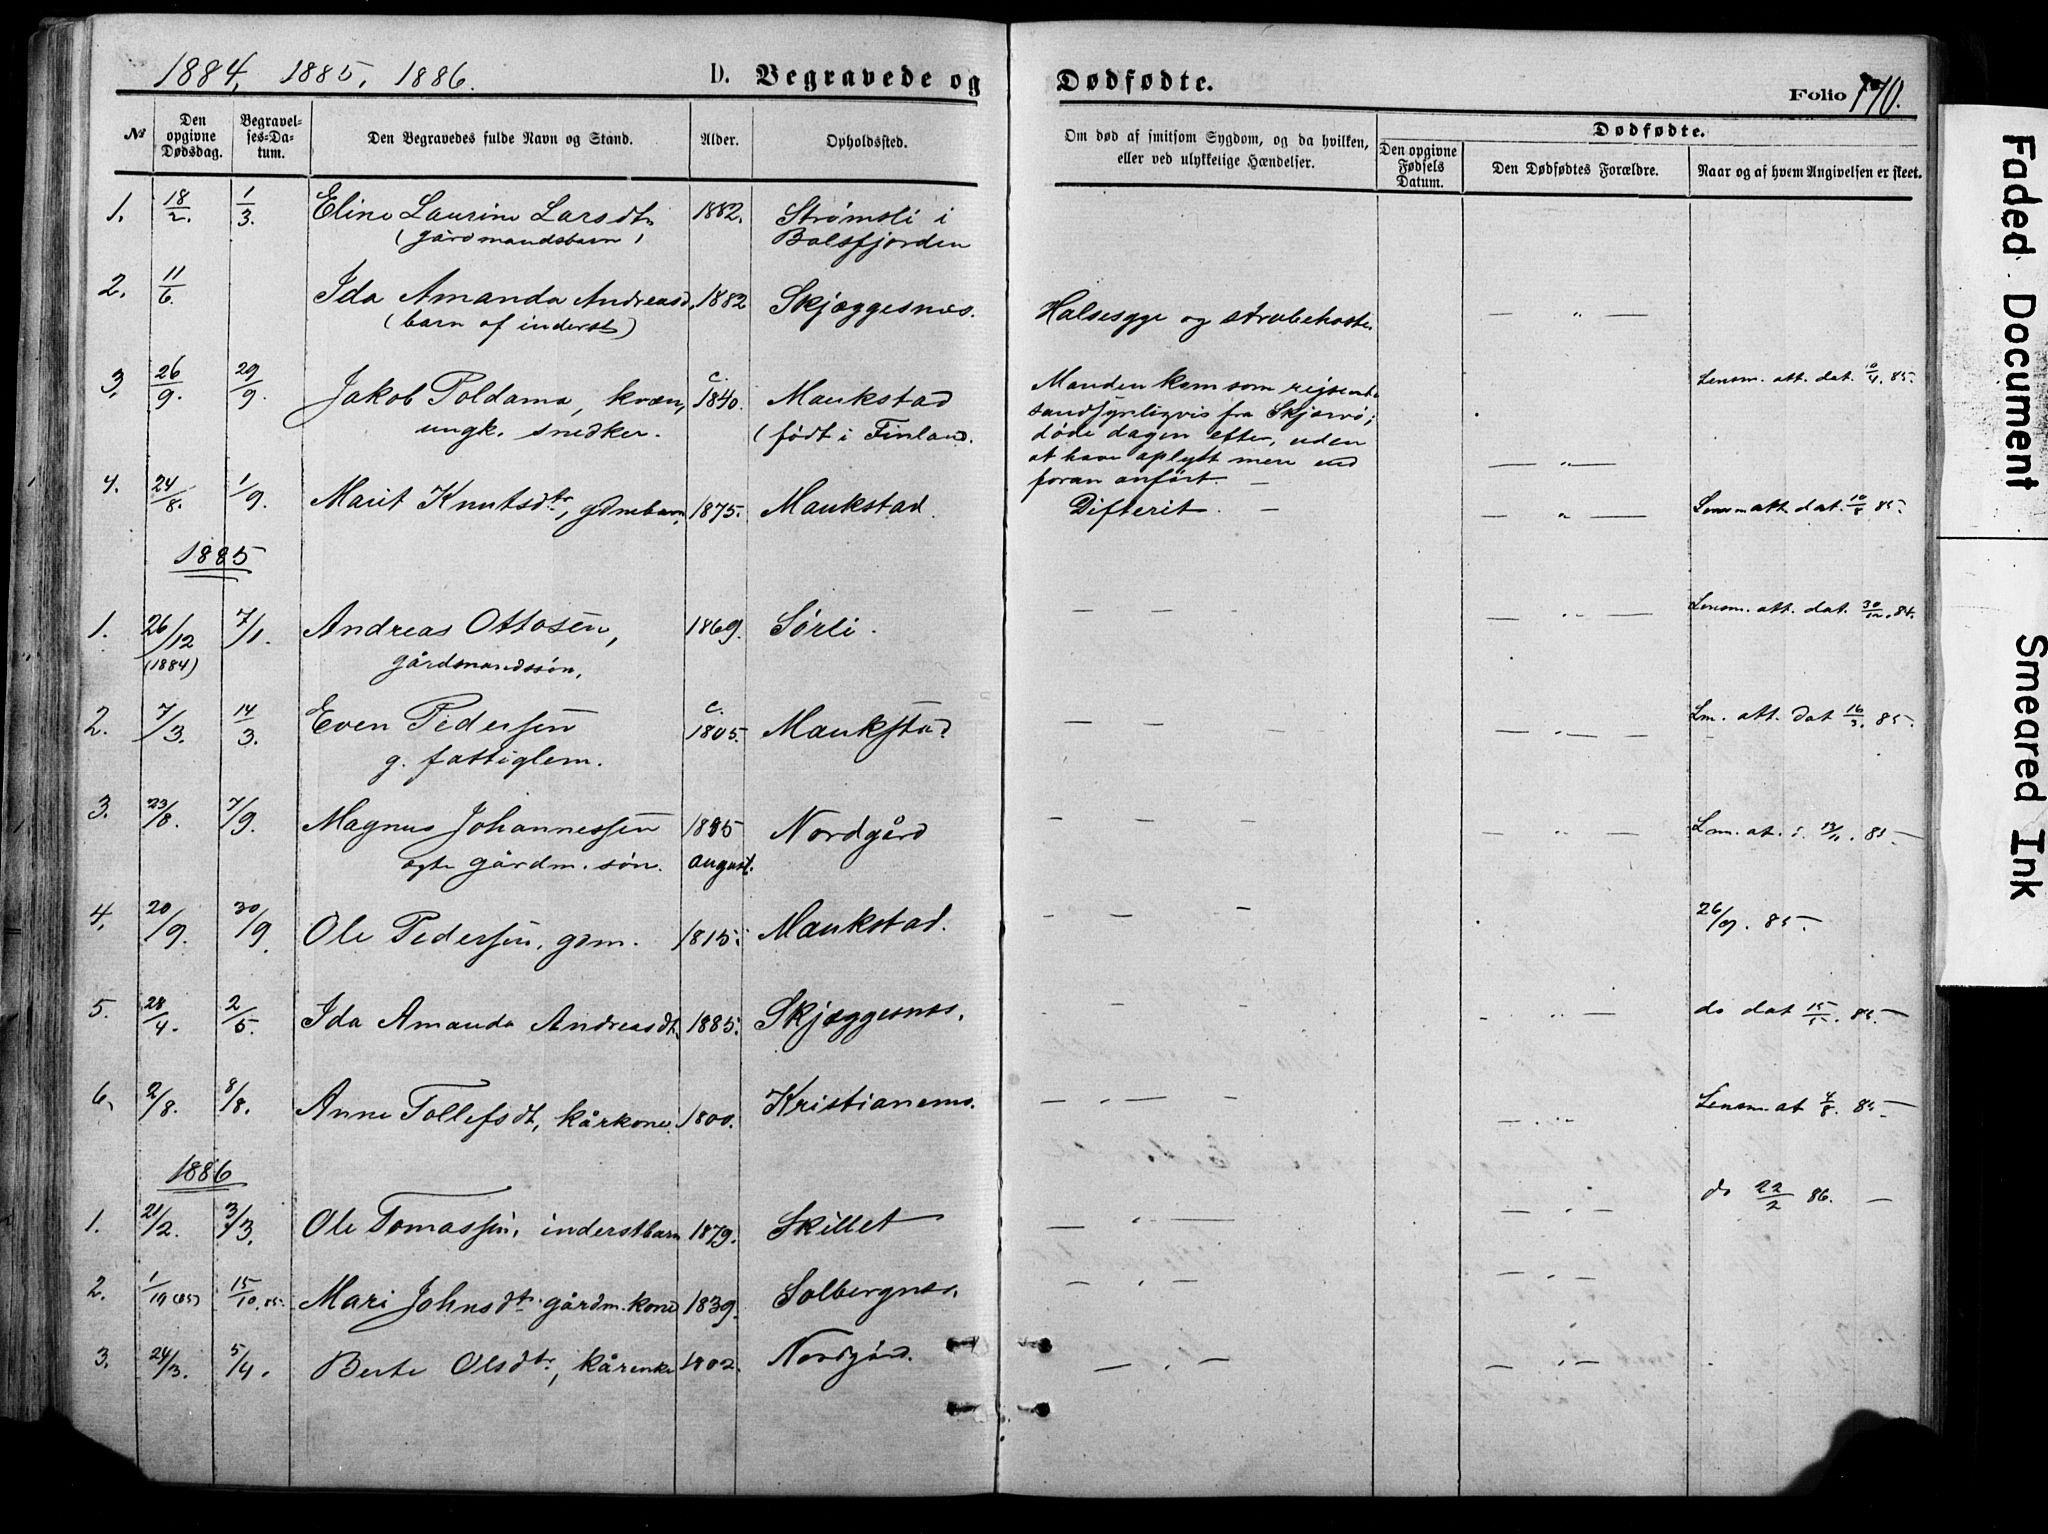 1884, 1885, 1886.
D. Begravede og Dødfødte.
Folio 170.
№
Den opgivne Dødsdag.
Begravelses-Datum.
Den Begravedes fulde Navn og Stand.
Alder.
Opholdssted.
Om død af smitsom Sygdom, og da hvilken, eller ved ulykkelige Hændelser.
Dødfødte.
Den opgivne Fødsels Datum.
Den Dødfødtes Forældre.
Naar og af hvem Angivelsen er skeet.
1. 18/2. 1/3. Eline Laurine Larsdt. 1882. Strømsli i
(gårdmandsbarn) Balsfjorden
2. 11/6. Ida Amanda Andreasd. 1882 Skjæggesnes. Halsesyge og strubehoste. — " —
(barn af inderst)
3. 26/9. 29/9. Jakob Poldama, kvæn, c. 1840. Maukstad Manden kom som rejsende Lensm. att. dat. 10/4. 85.
ungk. snedker. (født i Finland. sandsynligvis fra Skjervø;
døde dagen efter, uden
at have oplyst mere end — " —
foran anført. —
4. 24/8. 1/9. Marit Knutsdtr, gdmbarn, 1875. Maukstad. Difterit. — — " — Lensm att dat. 10/8 85.
1885
1. 26/12 7/1. Andreas Ottosen, 1869. Sørli. — — — — " — Lensm. att. dat. 30/12. 84.
(1884) gårdmandssøn.
2. 7/3. 14/3. Even Pedersen c. 1805. Maukstad — — — — " — Lm. att. dat 16/3. 85.
g. fattiglem.
3. 23/8. 7/9. Magnus Johannessen 1885 Nordgård — — — — " — Lm. at. 85—
ægte gårdm. søn. august.
4. 20/9. 30/9. Ole Pedersen, gdm. 1815. Maukstad. — — — — " — 26/9. 85.
5. 28/4. 2/5. Ida Amanda Andreasdt. 1885. Skjæggesnes. — — — — " — do dat 15/5. 85.
6. 2/8. 8/8. Anne Tollefsdt, kårkone. 1800. Kristianems. — " — — " — Lensm. at 4/8. 85—
1886
1. 21/2. 3/3. Ole Tomassen, inderstbarn 1879. Skillet — " — — " — do 22/2 86. —
2. 1/10 (85) 15/10. 85. Mari Johnsdtr. gårdm. kone 1839. Solbergnes. — " — — " —
3. 24/3. 5/4. Berte Olsdtr, kårenke 1802. Nordgård. — " — — " —
Faded Document
Smeared Ink